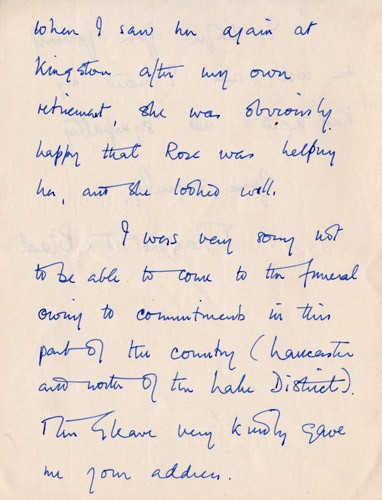 When I saw her again at
Kingston after my own
retirement, she was obviously
happy that Rose was helping
her, and she looked well.
I was very sorry not
to be able to come to the funeral
owing to commitments in this
part of the country (Lancaster
and north of the Lake District).
very kindly gave
me your address.